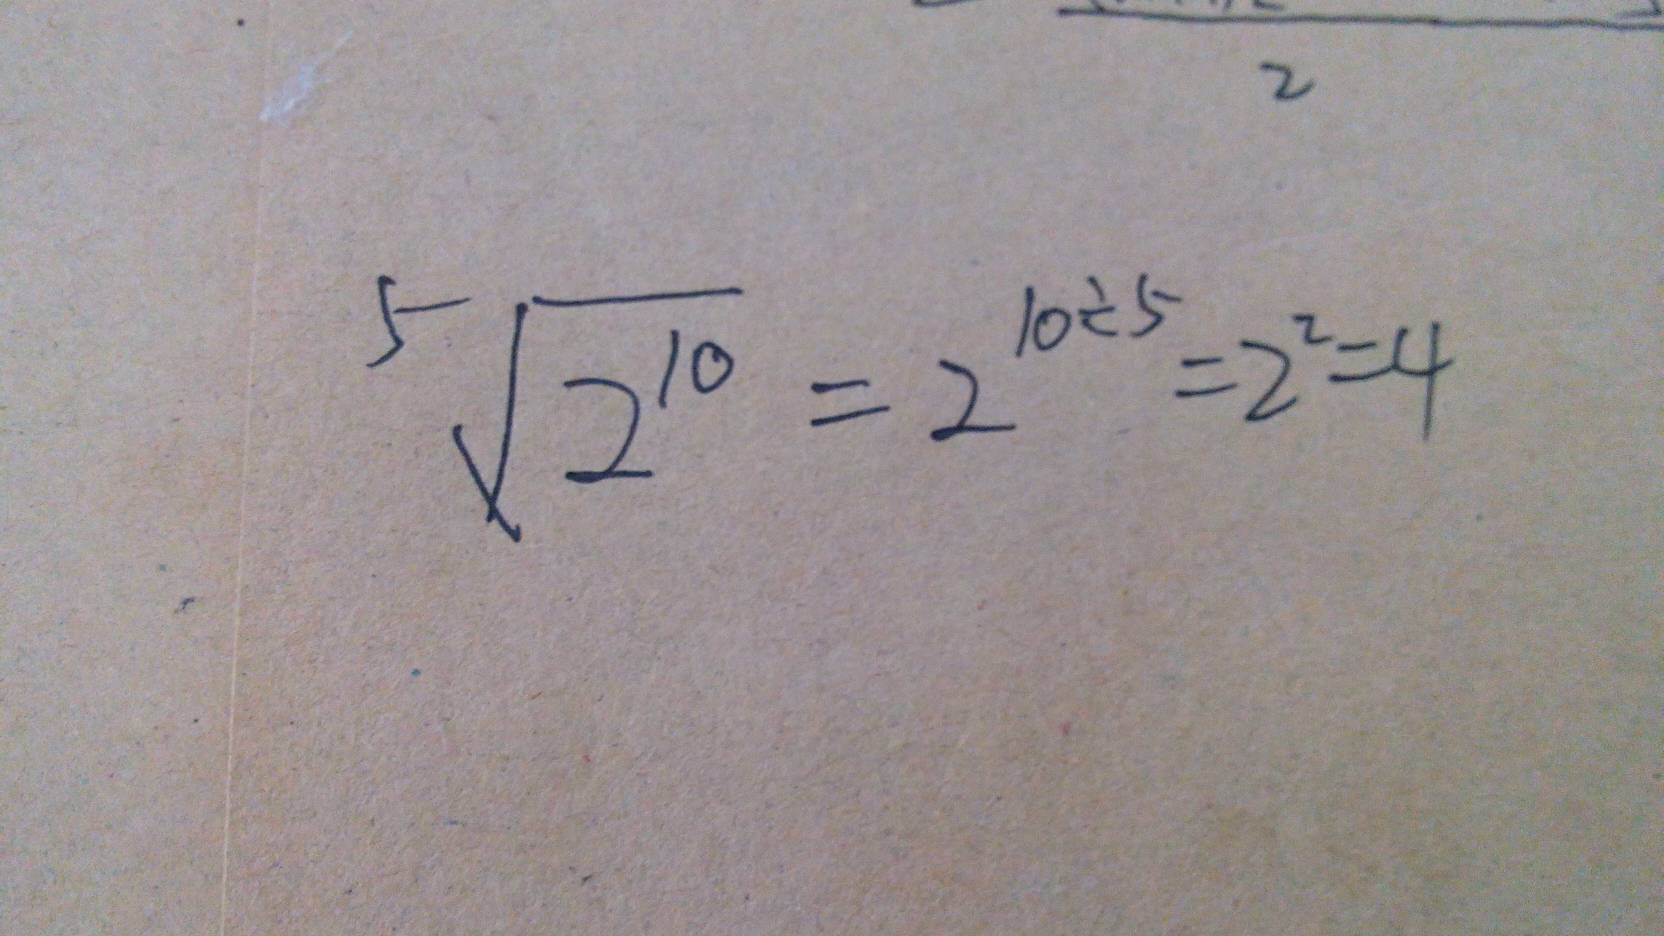 2
⁵√2¹⁰ = 2^{10÷5} = 2² = 4